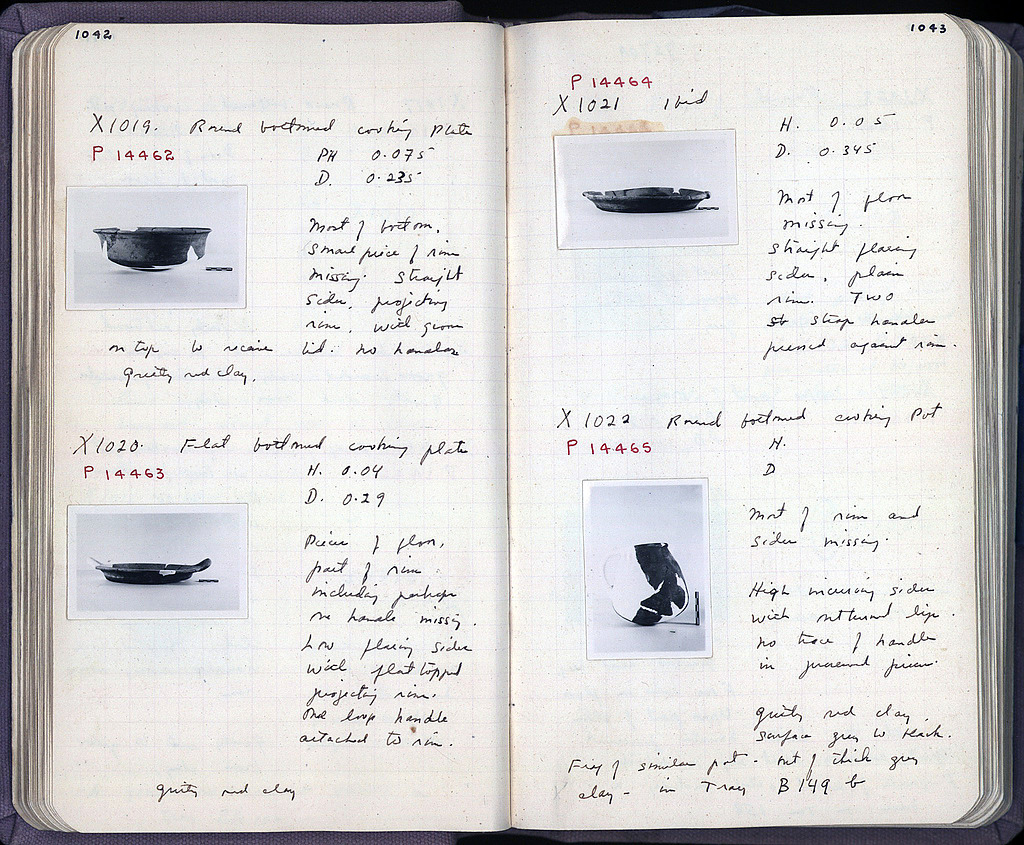 1042
X1019. Round bottomed cooking plate
P 14462
PH 0.075
D. 0.235
Most of bottom,
small piece of rim
missing. Straight
sides, projecting
rim, with groove
on top to receive lid. No handles
Gritty red clay.
X1020. Flat bottomed cooking plate
P 14463
H. 0.04
D. 0.29
Piece of floor,
part of rim
including perhaps
one handle missing.
Low flaring sides
with flat topped
projecting rim.
One loop handle
attached to rim.
gritty red clay
1043
P 14464
X1021 Ibid
H. 0.05
D. 0.345
Most of floor
missing.
Straight flaring
sides, plain
rim. Two
st strap handles
pressed against rim.
X1022 Round bottomed cooking pot
P 14465
H.
D
Most of rim and
sides missing.
High incurving sides
with outturned lip.
No trace of handle
in preserved pieces.
gritty red clay.
Surface grey to black.
Frag of similar pot - out of thick grey
clay - in Tray B 149 b